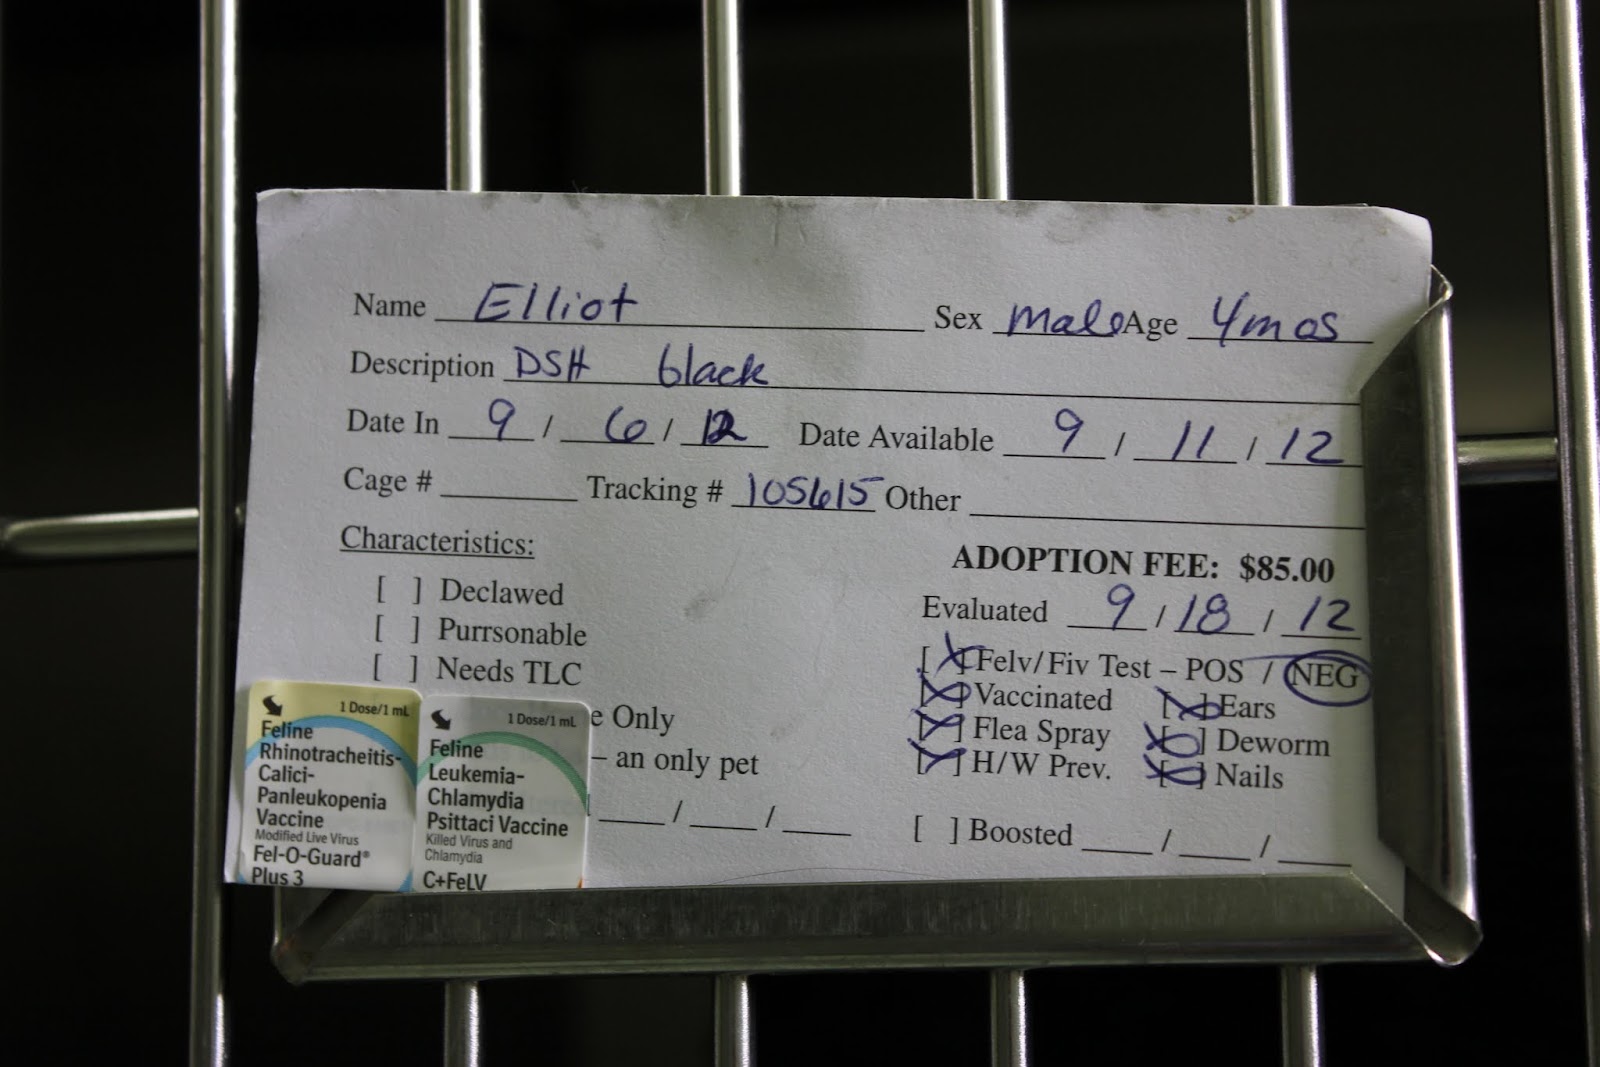 Name Elliot Sex Male Age 4mos
Description DSH black
Date In 9 / 6 / 12 Date Available 9 / 11 / 12
Cage # Tracking # 105615 Other
Characteristics:
ADOPTION FEE: $85.00
[ ] Declawed
Evaluated 9 / 18 / 12
[ ] Purrsonable
[X] Felv/Fiv Test – POS / NEG
[ ] Needs TLC
[X] Vaccinated [X] Ears
e Only
[X] Flea Spray [X] Deworm
– an only pet
[X] H/W Prev. [X] Nails
/ /
[ ] Boosted / /
1 Dose/1 mL
Feline
Rhinotracheitis-
Calici-
Panleukopenia
Vaccine
Modified Live Virus
Fel-O-Guard®
Plus 3
1 Dose/1 mL
Feline
Leukemia-
Chlamydia
Psittaci Vaccine
Killed Virus and
Chlamydia
C+FeLV